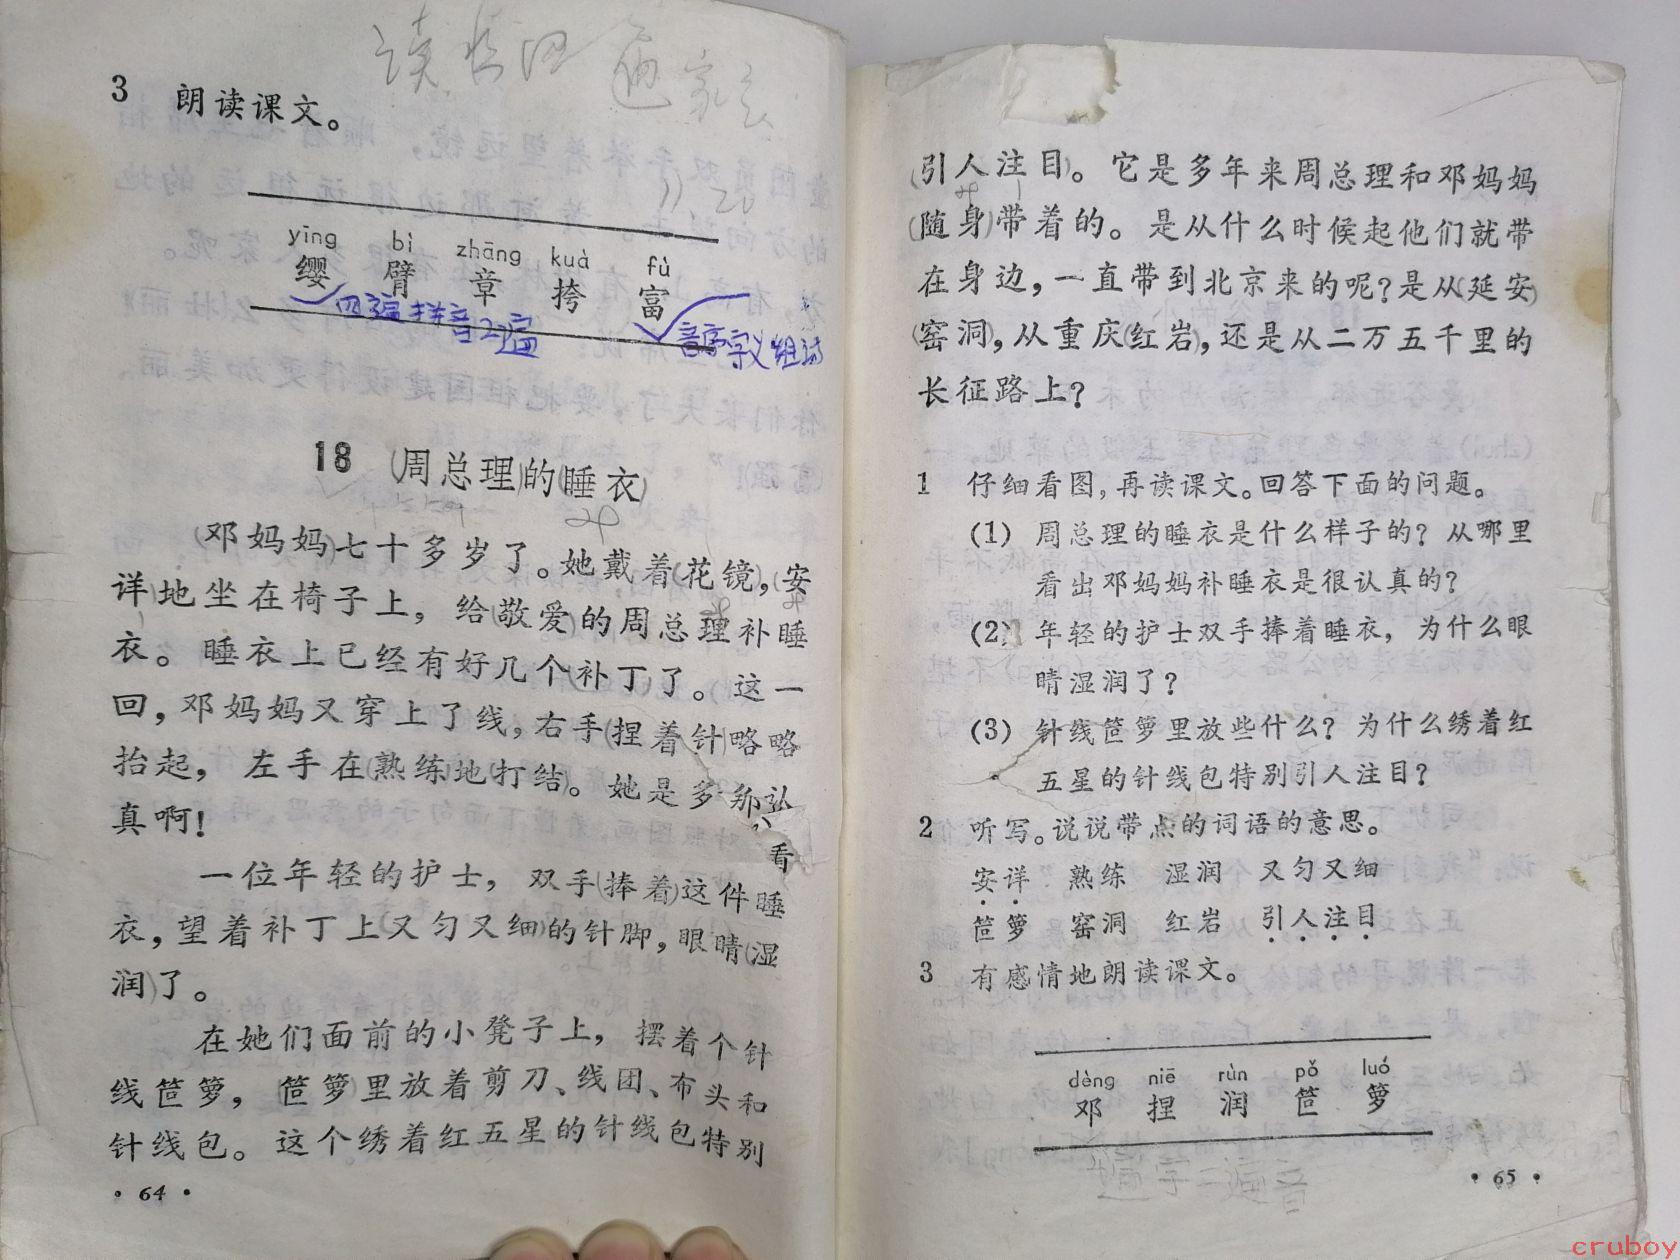 3 朗读课文。
yīng bì zhāng kuà fù
缨 臂 章 挎 富
18 (周总理)的(睡衣)
(邓妈妈)七十多岁了。她戴着(花镜,(安
详)地坐在椅子上，给(敬爱)的周总理补睡
衣。睡衣上已经有好几个(补丁)了。这一
回，邓妈妈又穿上了线，右手(捏着针)略略
抬起，左手在(熟练)地打结。她是多那认
真啊！
看
一位年轻的护士，双手(捧着)这件睡
衣，望着补丁上又匀又细的针脚，眼睛(湿
润)了。
在她们面前的小凳子上，摆着个针
线笸箩，笸箩里放着剪刀、线团、布头和
针线包。这个绣着红五星的针线包特别
• 64 •
(引人注目)。它是多年来周总理和邓妈妈
(随身)带着的。是从什么时候起他们就带
在身边，一直带到北京来的呢？是从(延安)
(窑洞)，从重庆(红岩)，还是从二万五千里的
长征路上？
1 仔细看图，再读课文。回答下面的问题。
(1) 周总理的睡衣是什么样子的？从哪里
看出邓妈妈补睡衣是很认真的？
(2) 年轻的护士双手捧着睡衣，为什么眼
睛湿润了？
(3) 针线笸箩里放些什么？为什么绣着红
五星的针线包特别引人注目？
2 听写。说说带点的词语的意思。
安详 熟练 湿润 又匀又细
笸箩 窑洞 红岩 引人注目
3 有感情地朗读课文。
dèng niē rùn pǒ luó
邓 捏 润 笸 箩
• 65 •
cruboy